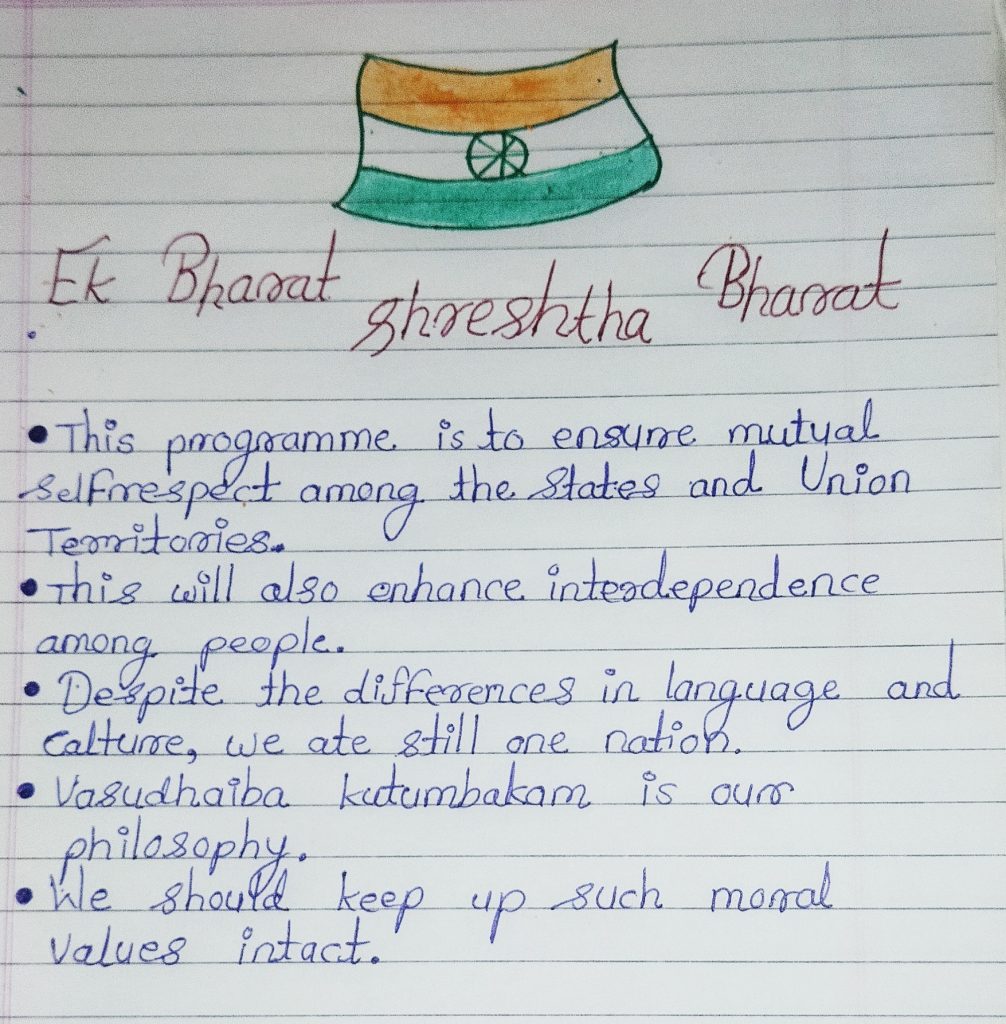 Ek Bharat shreshtha Bharat
• This programme is to ensure mutual
selfrespect among the States and Union
Territories.
• This will also enhance interdependence
among people.
• Despite the differences in language and
calture, we ate still one nation.
• Vasudhaiba kutumbakam is our
philosophy.
• We should keep up such moral
values intact.